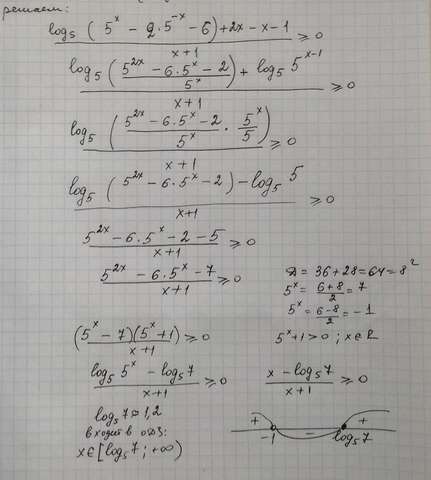 решаем:
log₅(5ˣ − 2·5⁻ˣ − 6) + 2x − x − 1 / x+1 ≥ 0
log₅(5²ˣ − 6·5ˣ − 2 / 5ˣ) + log₅ 5ˣ⁻¹ / x+1 ≥ 0
log₅(5²ˣ − 6·5ˣ − 2 / 5ˣ · 5ˣ / 5) / x+1 ≥ 0
log₅(5²ˣ − 6·5ˣ − 2) − log₅ 5 / x+1 ≥ 0
5²ˣ − 6·5ˣ − 2 − 5 / x+1 ≥ 0
5²ˣ − 6·5ˣ − 7 / x+1 ≥ 0
D = 36 + 28 = 64 = 8²
5ˣ = 6+8 / 2 = 7
5ˣ = 6−8 / 2 = −1
5ˣ+1 > 0 ; x ∈ R
(5ˣ − 7)(5ˣ + 1) / x+1 ≥ 0
log₅ 5ˣ − log₅ 7 / x+1 ≥ 0
x − log₅ 7 / x+1 ≥ 0
log₅ 7 ≈ 1,2
входит в ОДЗ:
x ∈ [log₅ 7 ; +∞)
+ − +
−1 log₅ 7